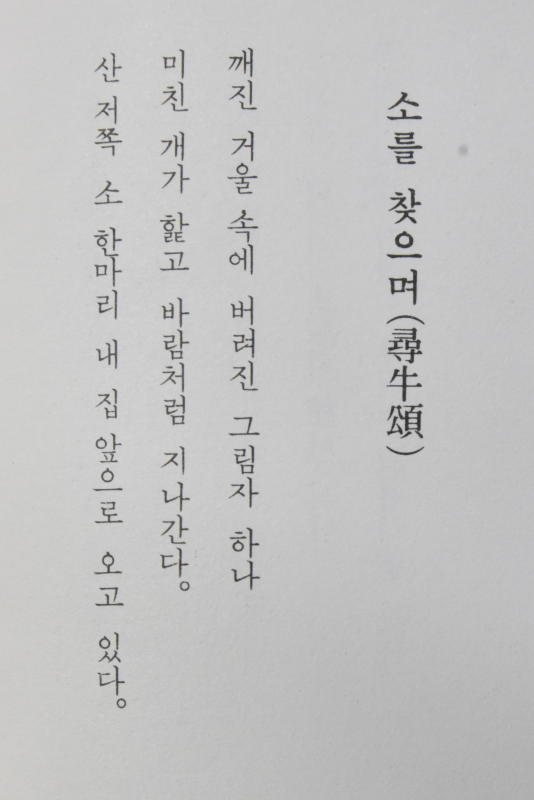 소를 찾으며(尋牛頌)
깨진 거울 속에 버려진 그림자 하나
미친 개가 핥고 바람처럼 지나간다。
산 저쪽 소 한마리 내 집 앞으로 오고 있다。